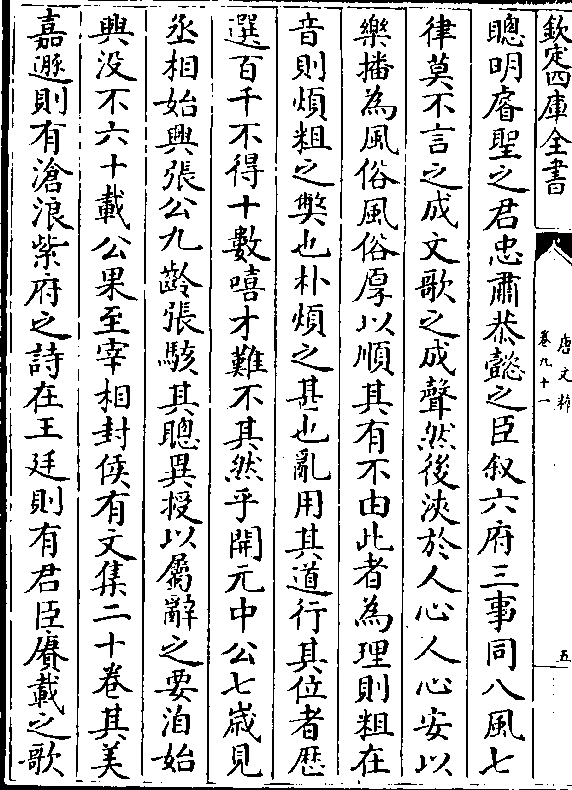 欽定四庫全書
唐文粹
卷九十一
五
聰明睿聖之君忠肅恭懿之臣叙六府三事同八風七
律莫不言之成文歌之成聲然後浹於人心人心安以
樂播為風俗風俗厚以順其有不由此者為理則粗在
音則煩粗之弊也朴煩之甚也亂用其道行其位者歴
選百千不得十數嘻才難不其然乎開元中公七嵗見
丞相始興張公九齡張駭其聰異授以屬辭之要洎始
興没不六十載公果至宰相封侯有文集二十卷其美
嘉遯則有滄浪紫府之詩在王廷則有君臣賡載之歌